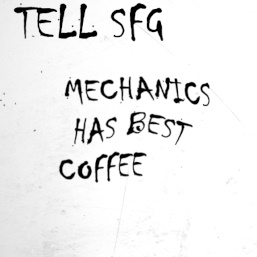 TELL SFG
MECHANICS
HAS BEST
COFFEE